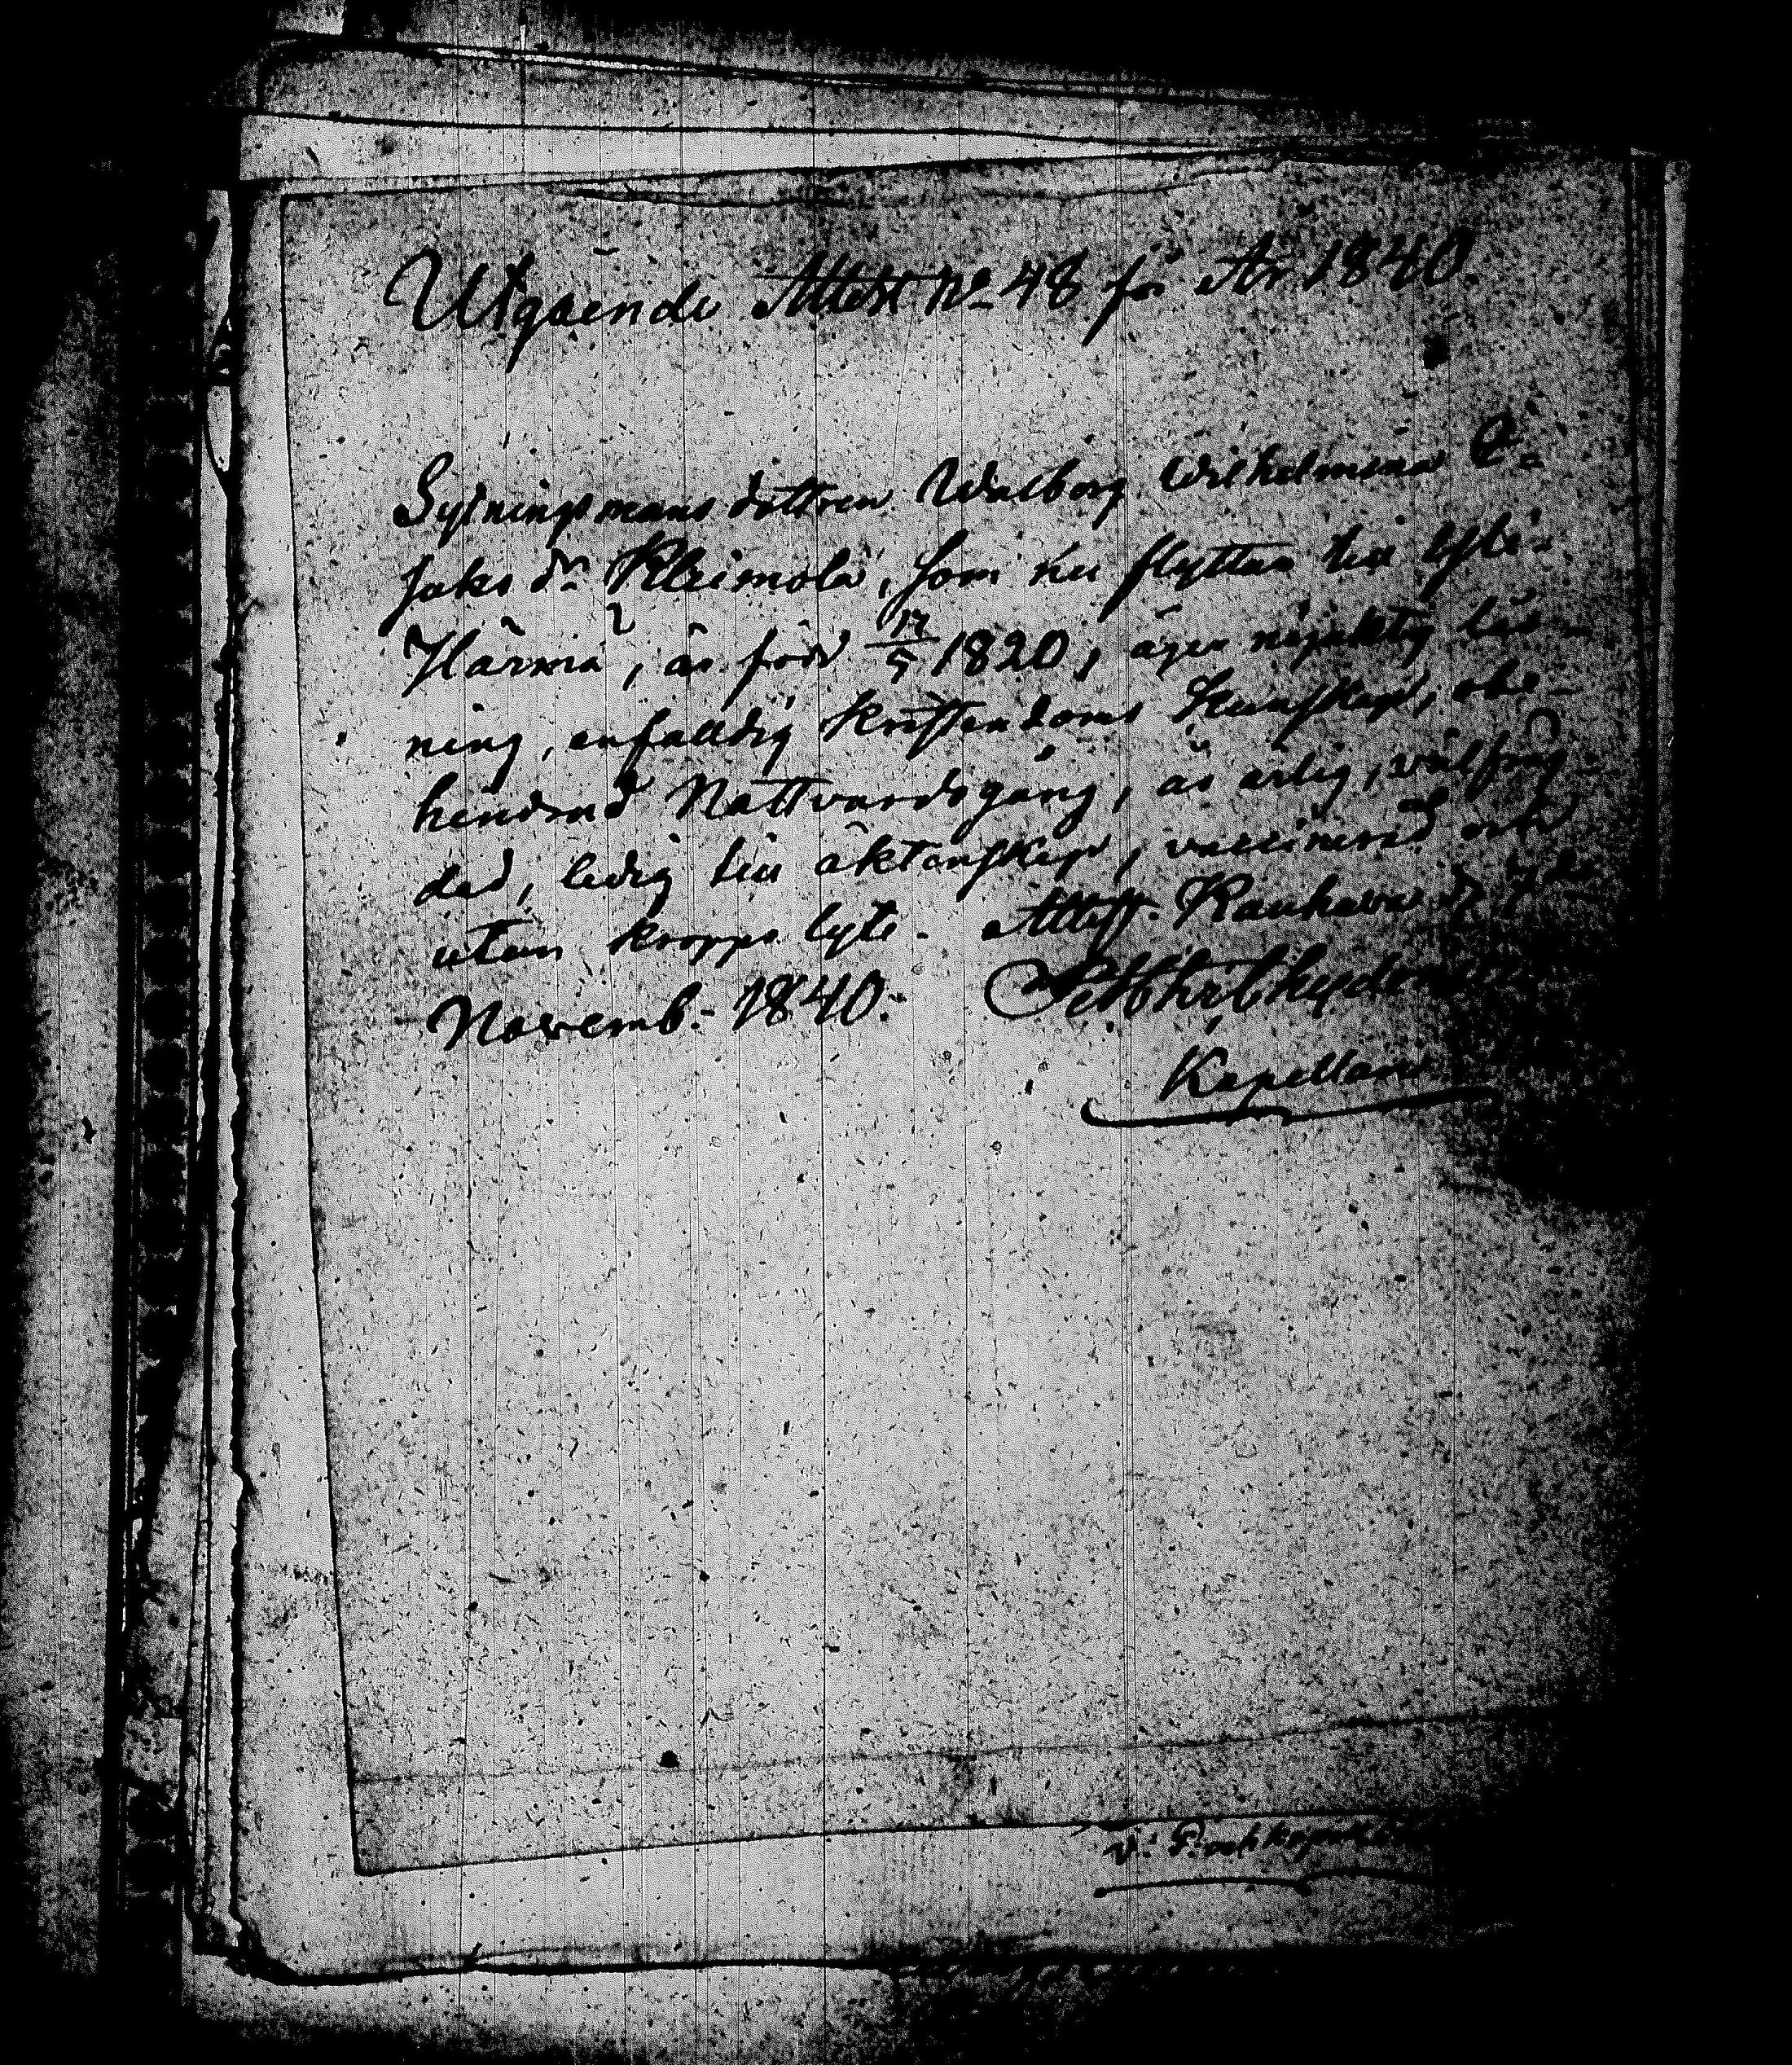 Utgående Attest No 48 för År 1840.
Sytningsmans dottren Walborg Wilhelmina
Jaks dr Kleimola, som nu flyttar till Yli-
Härmä, är född 17/5 1820, äger nöjaktig läs-
ning, enfalldig Kristendoms Kunskap, obe-
hindrad Nattvardsgång, är ärlig, välfräg-
dad, ledig till äktenskap, vaccinerad och
utan kropps lyte. Attest. Kauhava d.
Novemb. 1840.
Kapellan